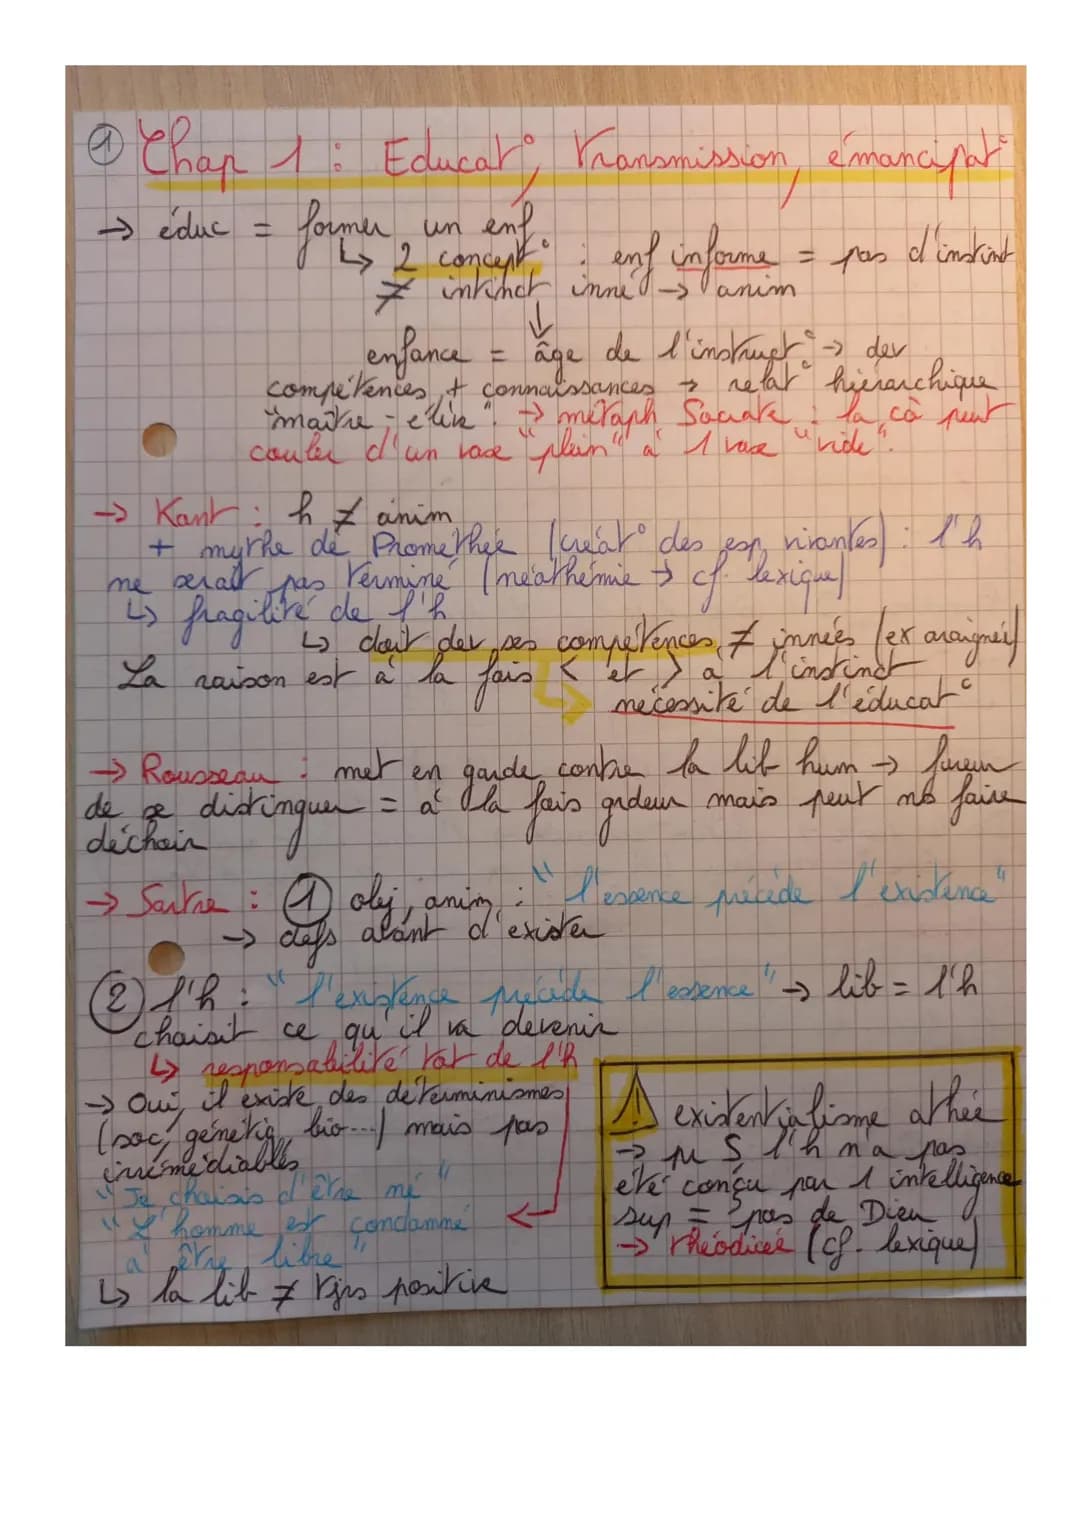 ① Chap 1 : Educat°, Transmission, émancipat°
→ éduc = former un enf
↳ 2 concept° : enf informe = pas d'instinct
≠ intinct inné → anim
↓
enfance = âge de l'instruct° → dev
compétences + connaissances → relat° hiérarchique
"maître - élève" → métaph Socrate : la cò peut
couler d'un vase "plein" à 1 vase "vide".
→ Kant : h ≠ anim
+ mythe de Prométhée (créat° des esp vivantes) : l'h
ne serait pas terminé (néathémie → cf. lexique)
↳ fragilité de l'h
↳ doit dev ses compétences ≠ innées (ex araignée)
La raison est à la fois < et > à l'instinct
↳ nécessité de l'éducat°
→ Rousseau : met en garde contre la lib hum → fureur
de se distinguer = à la fois grdeur mais peut ns faire
déchoir
→ Sartre : ① obj, anim : "l'essence précède l'existence"
→ défs avant d'exister
② l'h : "l'existence précède l'essence" → lib = l'h
choisit ce qu'il va devenir
↳ responsabilité tot de l'h
→ Oui, il existe des déterminismes
(soc, génétiq, bio...) mais pas
irrémédiables
"Je choisis d'être né"
"L'homme est condamné
à être libre"
↳ la lib ≠ tjrs positive
⚠ existentialisme athée
→ pr S l'h n'a pas
été conçu par 1 intelligence
sup = pas de Dieu
→ théodicée (cf. lexique)